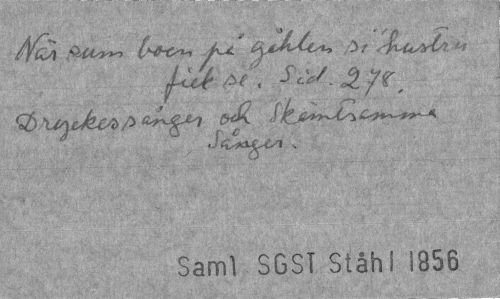 När som boen på gählen si hustru
fick se. Sid. 278.
Dryckessånger och Skämtsamma
Sånger.
Saml SGST Ståhl 1856